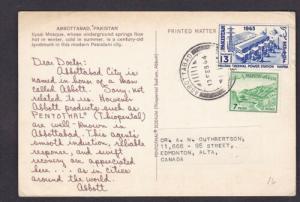 ABBOTTABAD, PAKISTAN
Ilyasi Mosque, whose underground springs flow
hot in winter, cold in summer, is a century-old
landmark in this modern Pakistani city.
PRINTED MATTER
Dear Doctor:
Abbottabad City is
named in honor of a man
called Abbott. Sorry, not
related to us. However
Abbott products such as
PENTOTHAL® (Thiopental)
are well-known in
Abbottabad. This agent's
smooth induction, reliable
response, and swift
recovery are appreciated
here.... as in cities
around the world.
Abbott
1963
PAKISTAN
13
PAKISTAN
7
ABBOTTABAD
DR A W CUTHBERTSON,
11,666 - 95 STREET,
EDMONTON, ALTA,
CANADA